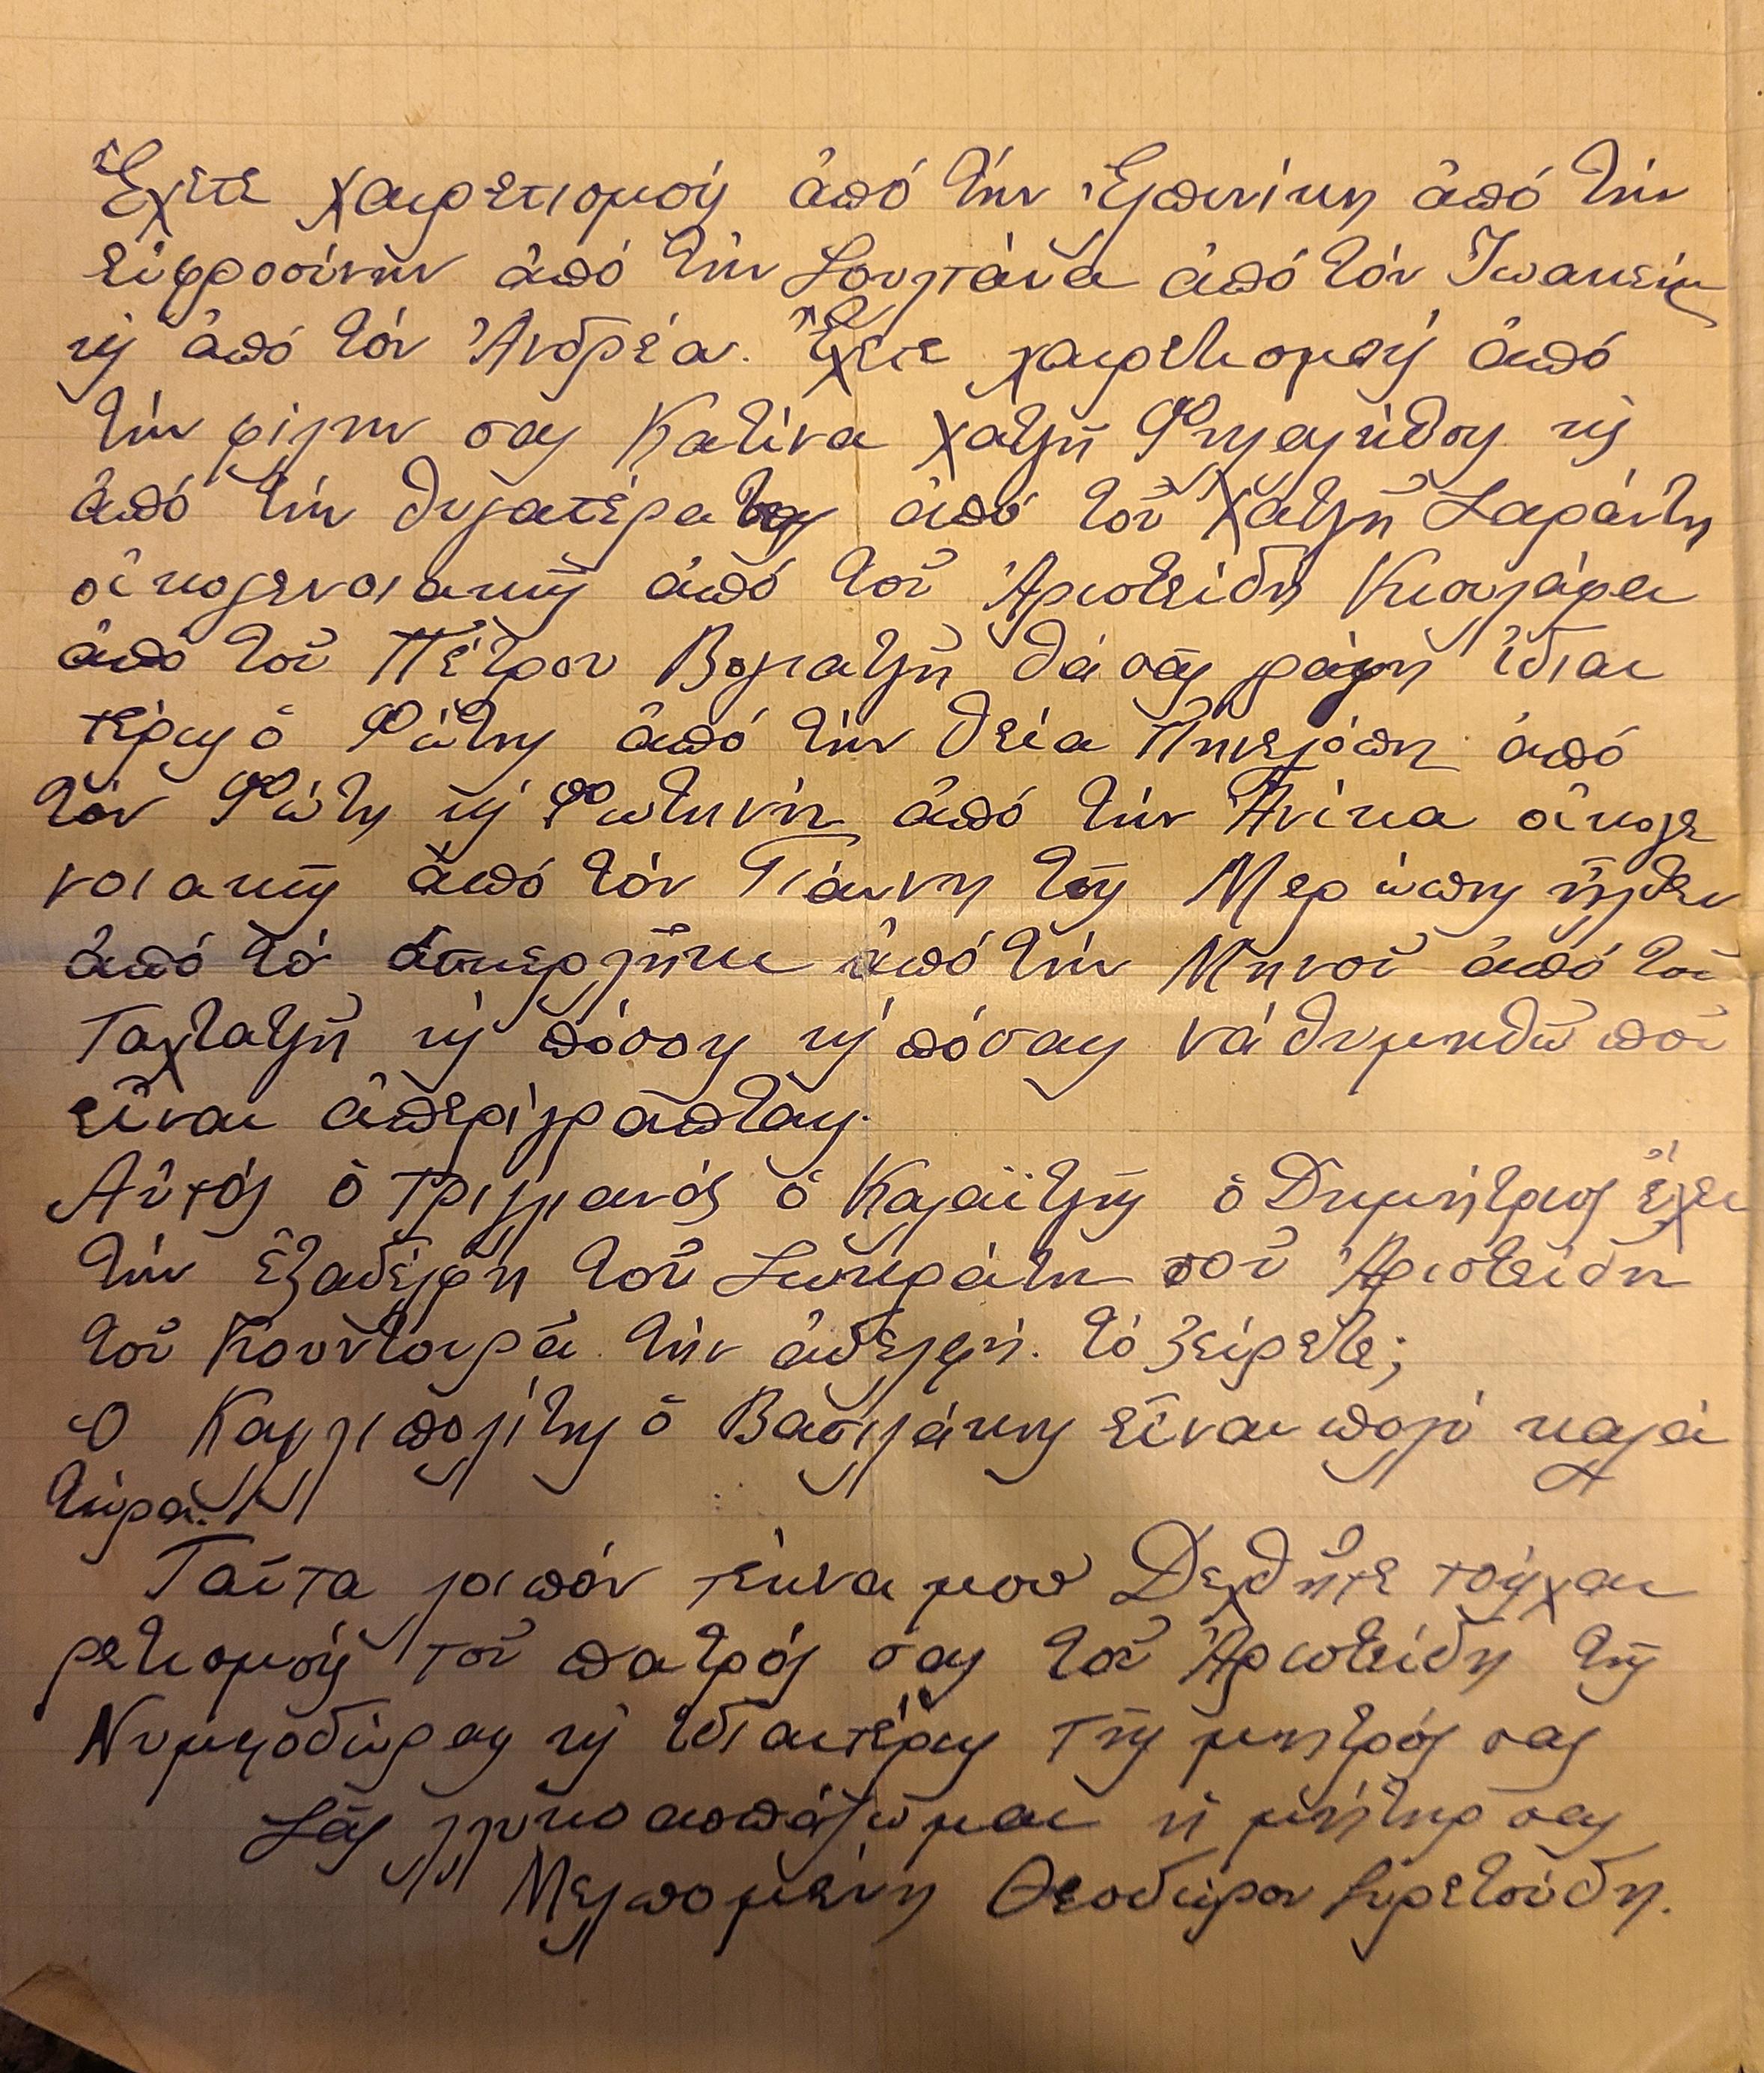 Ἔχετε χαιρετισμούς ἀπό τήν Ἐλπινίκη ἀπό τήν
εὐφροσίνην ἀπό τήν Σουλτάνα ἀπό τόν Ἰωακείμ
κὶ ἀπό τόν Ἀνδρέα. Ἔχετε χαιρετισμούς ἀπό
τήν φίλην σας Κατίνα Χατζῆ κὶ
ἀπό τήν θυγατέρα της ἀπό τοῦ Χατζῆ Σαράντη
οἰκογενοιακῆς ἀπό τοῦ Ἀριστείδη
ἀπό τοῦ Πέτρου Βογιατζῆ θά σᾶς γράψη ἰδιαι
τέρως ὁ Φώτης ἀπό τήν θεία Πηνελόπη ἀπό
τόν Φώτη κὶ Φωτηνή ἀπό τήν Ἀνίκα οἰκογε
νοιακῆς ἀπό τόν Γιάννη τῆς Μερώπης ἦλθεν
ἀπό τό ἀσκερλῆκι ἀπό τήν Μηνοῦ ἀπό τοῦ
Ταχτατζῆ κὶ πόσους κὶ πόσας νά θυμηθῶ ποῦ
εἶναι ἀπερίγραπται.
Αὐτός ὁ Τριγλιανός ὁ Καλαϊτζῆς ὁ Δημήτριος ἔχει
τήν ἐξαδέλφη τοῦ Σωκράτη τοῦ Ἀριστείδη
τοῦ Κουντουρᾶ τήν ἀδελφή. τό ξείρετε;
Ὁ Καλλιπολίτης ὁ Βασιλάκης εἶναι πολύ καλά
τώρα.
Ταῦτα λοιπόν τέκνα μου Δεχθῆτε τούς χαι
ρετισμούς τοῦ πατρός σας τοῦ Ἀριστείδη τῆς
Νυμφοδώρας κὶ ἰδιαιτέρως τῆς μητρός σας
Σᾶς γλυκοασπάζωμαι ἡ μήτηρ σας
Μελπομένη Θεοδώρου